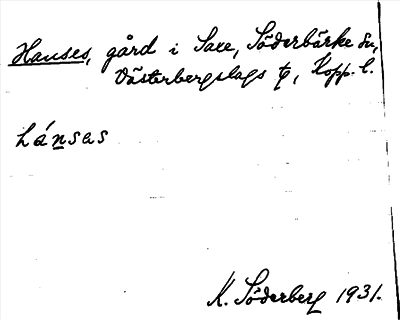 Hanses, gård i Saxe, Söderbärke sn,
Västerbergslags tg, Kopp. l.
hánsas
K. Söderberg 1931.